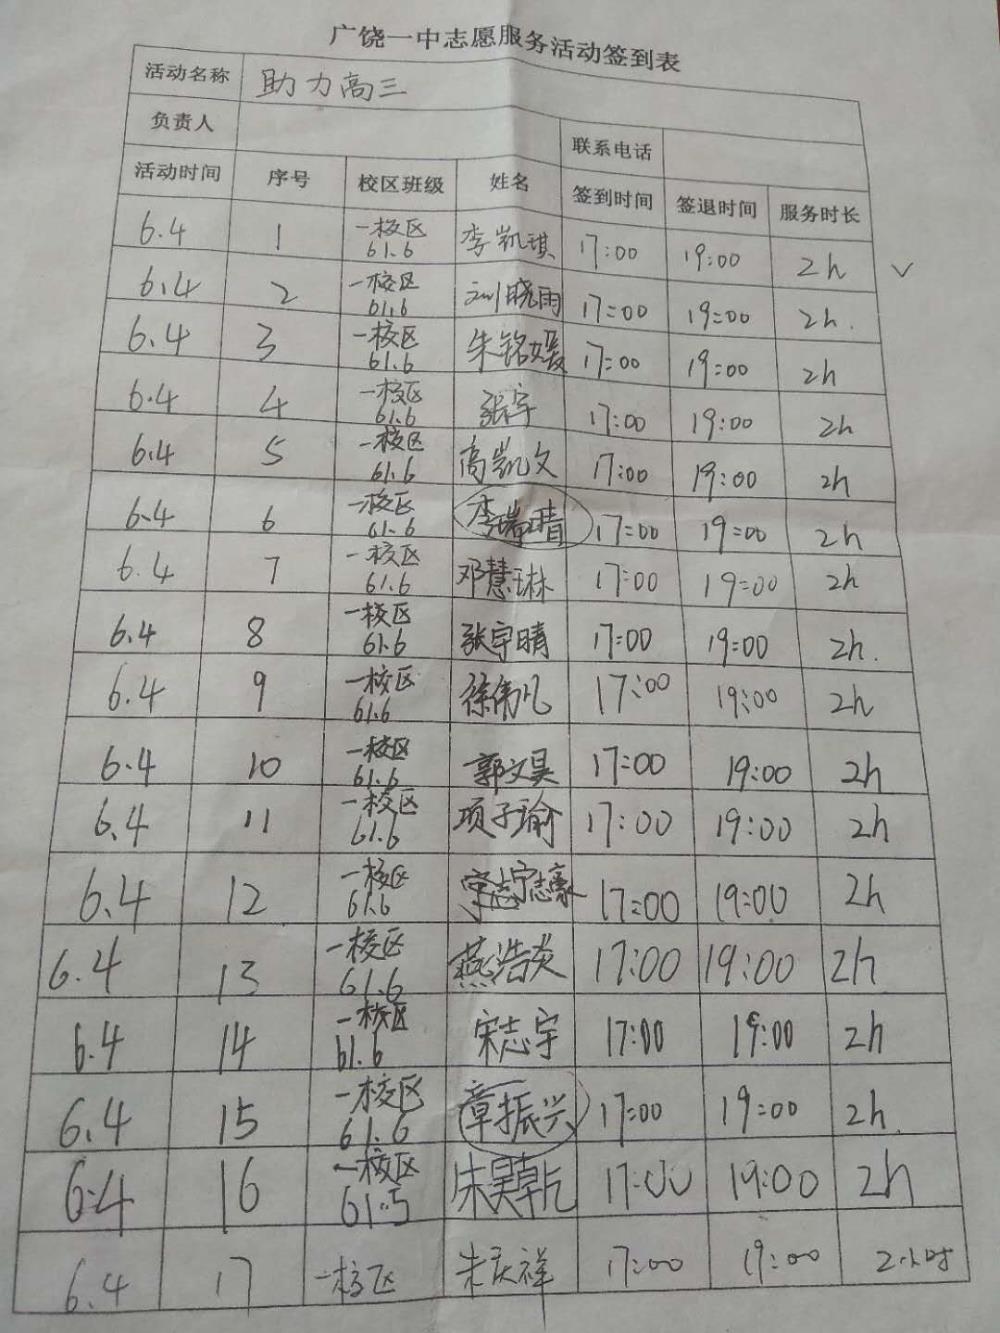 广饶一中志愿服务活动签到表
活动名称 助力高三
负责人 联系电话
活动时间 序号 校区班级 姓名 签到时间 签退时间 服务时长
6.4 1 一校区 61.6 李凯琪 17:00 19:00 2h ✓
6.4 2 一校区 61.6 刘晓雨 17:00 19:00 2h.
6.4 3 一校区 61.6 朱铭媛 17:00 19:00 2h
6.4 4 一校区 61.6 张宇 17:00 19:00 2h
6.4 5 一校区 61.6 高凯文 17:00 19:00 2h
6.4 6 一校区 61.6 李瑞晴 17:00 19:00 2h
6.4 7 一校区 61.6 邓慧琳 17:00 19:00 2h
6.4 8 一校区 61.6 张宇晴 17:00 19:00 2h.
6.4 9 一校区 61.6 徐伟凡 17:00 19:00 2h
6.4 10 一校区 61.6 郭文昊 17:00 19:00 2h
6.4 11 一校区 61.6 项子瑜 17:00 19:00 2h
6.4 12 一校区 61.6 17:00 19:00 2h
6.4 13 一校区 61.6 燕浩炎 17:00 19:00 2h
6.4 14 一校区 61.6 宋志宇 17:00 19:00 2h
6.4 15 一校区 61.6 章振兴 17:00 19:00 2h
6.4 16 一校区 61.5 朱昊乾 17:00 19:00 2h
6.4 17 一校区 朱庆祥 17:00 19:00 2小时